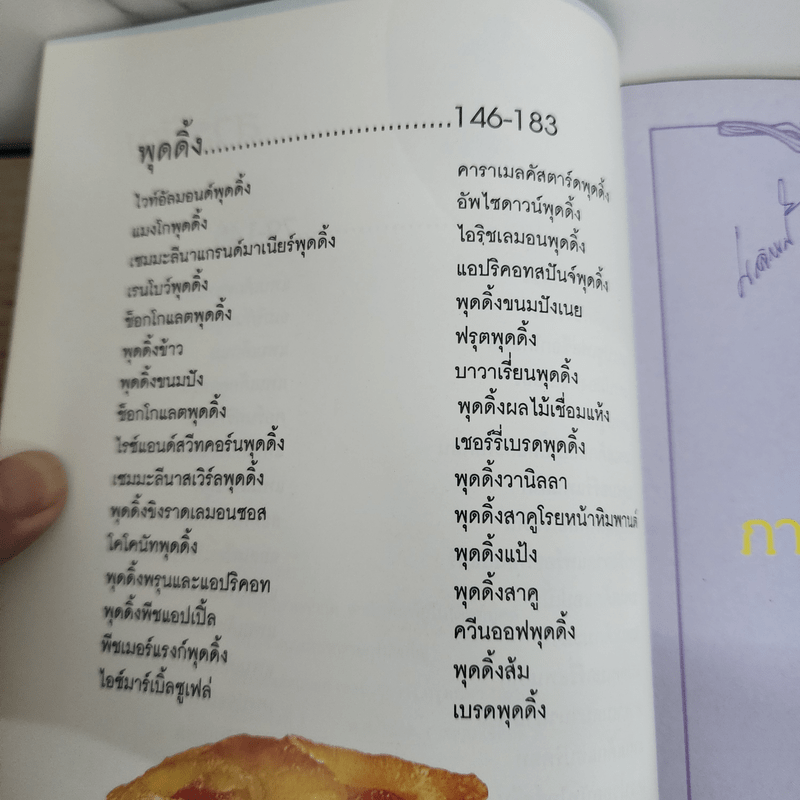 พุดดิ้ง..............................146-183
ไวท์อัลมอนด์พุดดิ้ง
แมงโกพุดดิ้ง
เซมมะลีนาแกรนด์มาเนียร์พุดดิ้ง
เรนโบว์พุดดิ้ง
ช็อกโกแลตพุดดิ้ง
พุดดิ้งข้าว
พุดดิ้งขนมปัง
ช็อกโกแลตพุดดิ้ง
ไรซ์แอนด์สวีทคอร์นพุดดิ้ง
เซมมะลีนาสเวิร์ลพุดดิ้ง
พุดดิ้งขิงราดเลมอนซอส
โคโคนัทพุดดิ้ง
พุดดิ้งพรุนและแอปริคอท
พุดดิ้งพีชแอปเปิ้ล
พีชเมอร์แรงก์พุดดิ้ง
ไอซ์มาร์เบิ้ลซูเฟล่
คาราเมลคัสตาร์ดพุดดิ้ง
อัพไซดาวน์พุดดิ้ง
ไอริชเลมอนพุดดิ้ง
แอปริคอทสปันจ์พุดดิ้ง
พุดดิ้งขนมปังเนย
ฟรุตพุดดิ้ง
บาวาเรี่ยนพุดดิ้ง
พุดดิ้งผลไม้เชื่อมแห้ง
เชอร์รี่เบรดพุดดิ้ง
พุดดิ้งวานิลลา
พุดดิ้งสาคูโรยหน้าหิมพานต์
พุดดิ้งแป้ง
พุดดิ้งสาคู
ควีนออฟพุดดิ้ง
พุดดิ้งส้ม
เบรดพุดดิ้ง